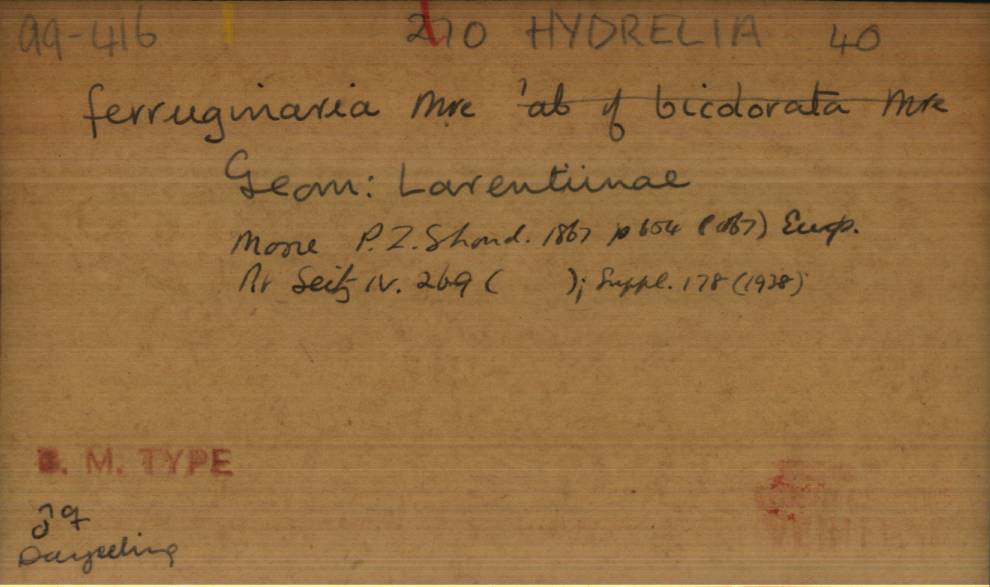 99-416 270 HYDRELIA 40
ferruginaria Mre 'ab of bicolorata Mre
Geom: Larentiinae
Moore P.Z.S Lond. 1867 p 654 (1867) Eucp.
Pr Seitz IV. 269 ( ); Suppl. 178 (1938)
B. M. TYPE
♂♀
Darjeeling